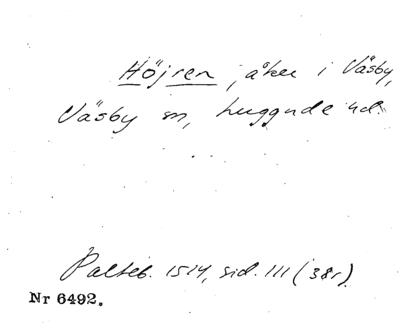 Höjren, åker i Väsby,
Väsby sn, Luggude hd.
Palteb. 1514, sid. 111 (38r)
Nr 6492.